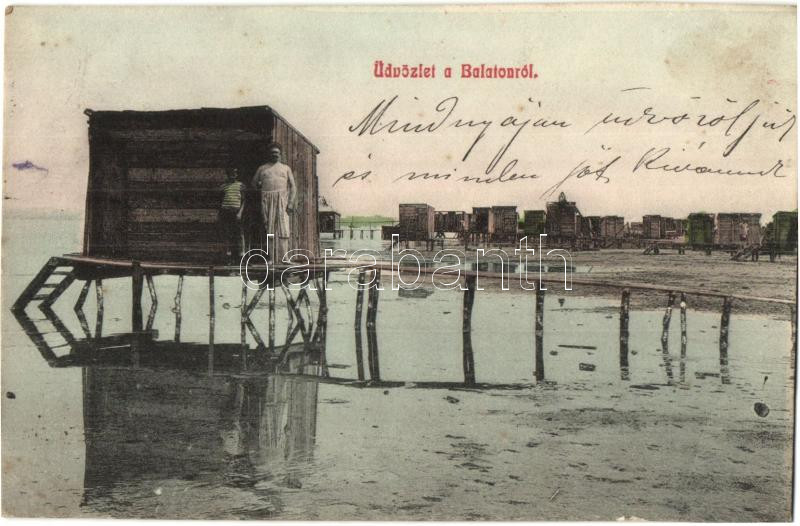 Üdvözlet a Balatonról.
Mindnyájan üdvözöljük
és minden jót kívánunk
darabanth